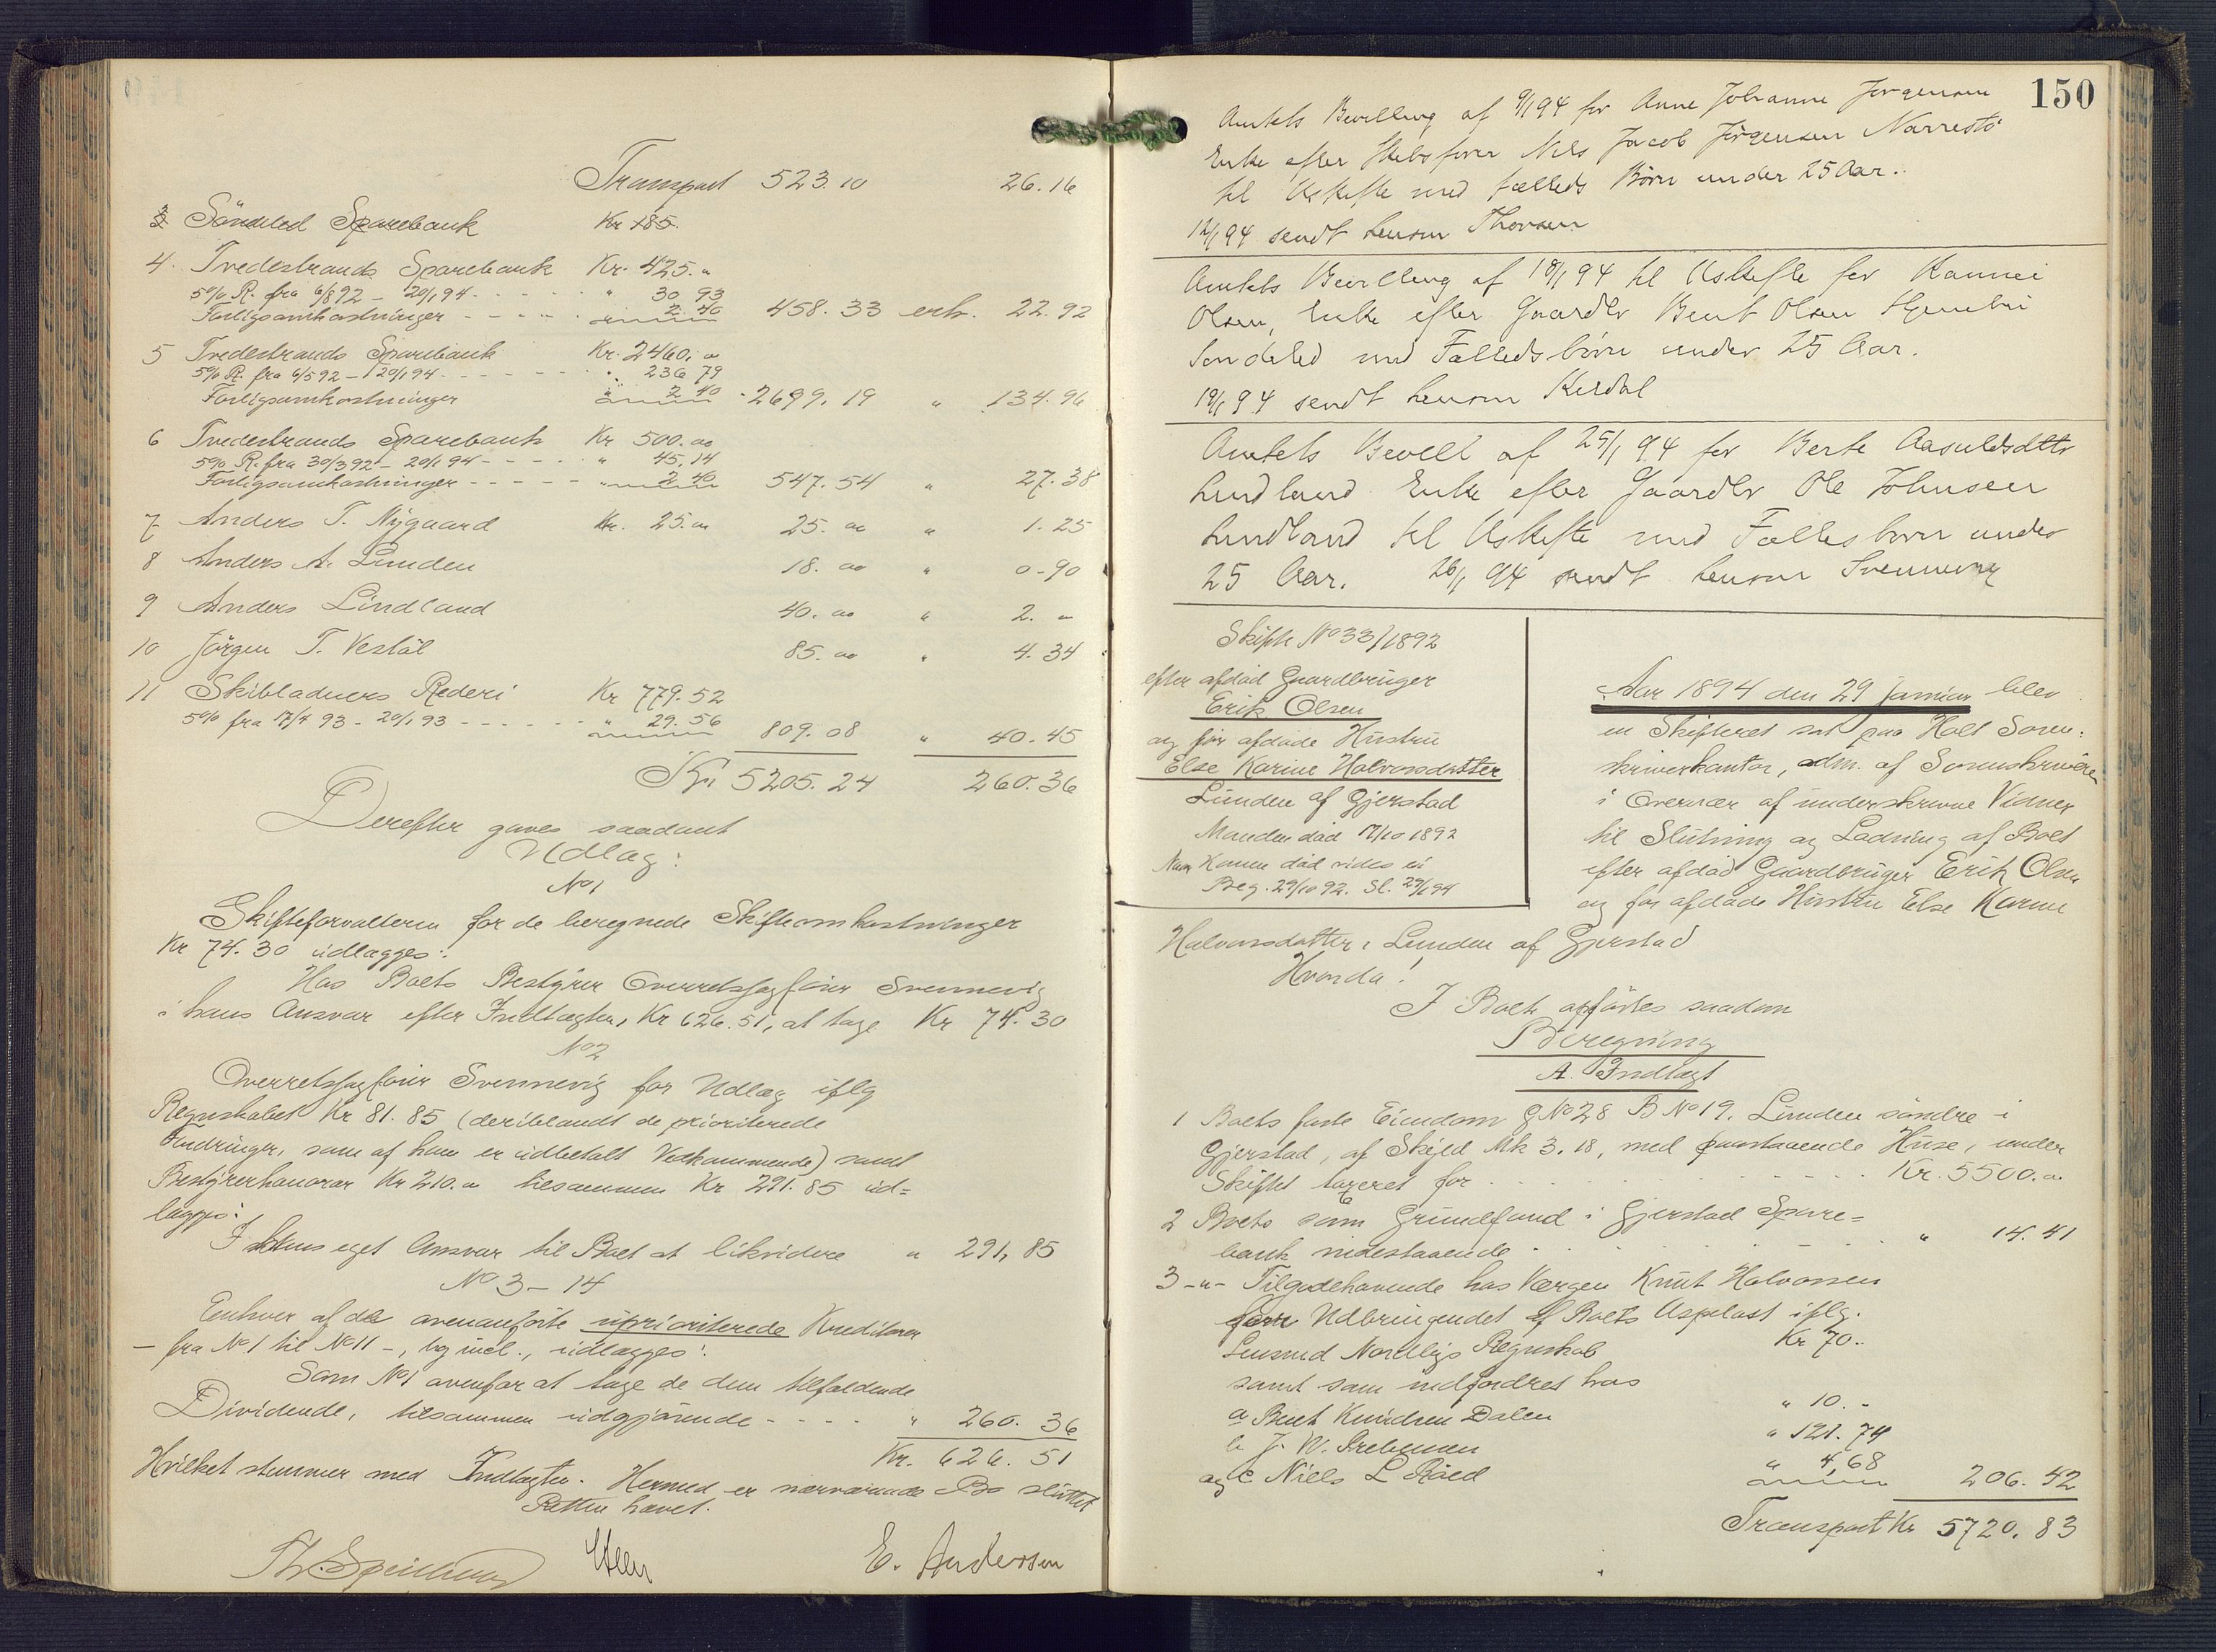 Transport 523.10 26.16
3 Söndeled Sparebank Kr 185.
4. Tvedestrands Sparebank Kr. 425.„
5% R. fra 6/8 92 – 20/1 94 - - - - - „ 30 93
Forligsomkostninger - - - - „ 2.40 458.33 erh. 22.92
5 Tvedestrands Sparebank Kr. 2460.„
5% R. fra 6/5 92 – 20/1 94 - - - - - „ 236 79
Forligsomkostninger „ 2 40 2699.19 „ 134.96
6 Tvedestrands Sparebank Kr 500.oo
5% R. fra 30/3 92 – 20/1 94 - - - - „ 45.14
Forligsomkostninger - - - - - „ 2.40 547.54 „ 27.38
7 Anders T. Nygaard Kr. 25.oo 25.oo „ 1.25
8 Anders A. Lunden 18.oo „ 0-90
9 Anders Lindland 40.oo „ 2.„
10 Jörgen T. Vestöl 85.oo „ 4.34
11 Skibladners Rederi Kr 779.52
5% fra 17/4 93 - 20/1 93 - - - - - - „ 29.56 809.08 „ 40.45
Kr. 5205.24 260.36
Derefter gaves saadant
Udlæg:
No 1
Skifteforvalteren for de beregnede Skifteomkostninger
Kr 74.30 udlægges:
Hos Boets Bestyrer Overretssagförer Svennevig
i hans Ansvar efter Indtægten, Kr 626.51, at tage Kr 74.30
No 2
Overretssagförer Svennevig for Udlæg iflg
Regnskabet Kr 81.85 (deriblandt de prioriterede
Fordringer, som af ham er udbetalt Vedkommende) samt
Bestyrerhonorar Kr 210.„ tilsammen Kr 291.85 ud=
lægges:
I hans eget Ansvar til Boet at likvidere „ 291,85
No 3 – 14
Enhver af de ovenanförte uprioriterede Kreditorer
– fra No 1 til No 11 –, beg incl., udlægges:
Som No 1 ovenfor at tage de dem tilfaldende
Dividende, tilsammen udgjörende - - - - „ 260.36
Kr. 626.51
Hvilket stemmer med Indtægten. Hermed er nærværende Bo sluttet
Retten hævet.
E. Anderssen
150
Amtets Bevilling af 9/1 94 for Anne Johanne Jörgensen
Enke efter Skibsförer Nils Jacob Jörgensen Narrestö
til Uskifte med fælleds Börn under 25 Aar.
12/1 94 sendt Lensm Thorsen
Amtets Bevilling af 18/1 94 til Uskifte for
Olsen, Enke efter Gaardbr Bent Olsen
Sondeled med Fælledsbörn under 25 Aar.
19/1 94 sendt Lensm
Amtets Bevill af 25/1 94 for Berte Aasuldsdtr
Lundland Enke efter Gaardbr Ole Johnsen
Lundland til Uskifte med Fællesbörn under
25 Aar. 26/1 94 sendt Lensm Svennevig
Skifte No 33/1892
efter afdöd Gaardbruger
Erik Olsen
og för afdöde Hustru
Else Karine Halvorsdatter
Lunden af Gjerstad
Manden död 17/10 1892
Naar Konen död vides ei
Beg. 29/10 92. Sl. 29/1 94
Aar 1894 den 29 januar blev
en Skifteret sat paa Holt Soren-
skriverkontor, adm. af Sorenskriveren
i Overvær af underskrevne Vidner
til Slutning og Lodning af Boet
efter afdöd Gaardbruger Erik Olsen
og för afdöde Hustru Else Karine
Halvorsdatter, Lunden af Gjerstad
Hvorda!
I Boet opförtes saadan
Beregning
A. Indtægt
1 Boets faste Eiendom G No 28 B No 19. Lunden söndre i
Gjerstad, af Skyld Mk 3.18, med paastaaende Huse, under
Skiftet taxeret for - - - - - - Kr. 5500.„
2 Boets som Grundfond i Gjerstad Spare=
bank indestaaende - - - - - „ 14.41
3 -„- Tilgodehavende hos Værgen Knut Halvorsen
for Udbringendet af Boets Uspelast iflg.
Lensmd Nordligs Regnskab Kr 70.-
samt som indfordret hos
a Bent Knudsen Dalen „ 10.-
b J. W. „ 121.74
og c Niels L Röed „ 4,68 206.42
Transport Kr 5720.83